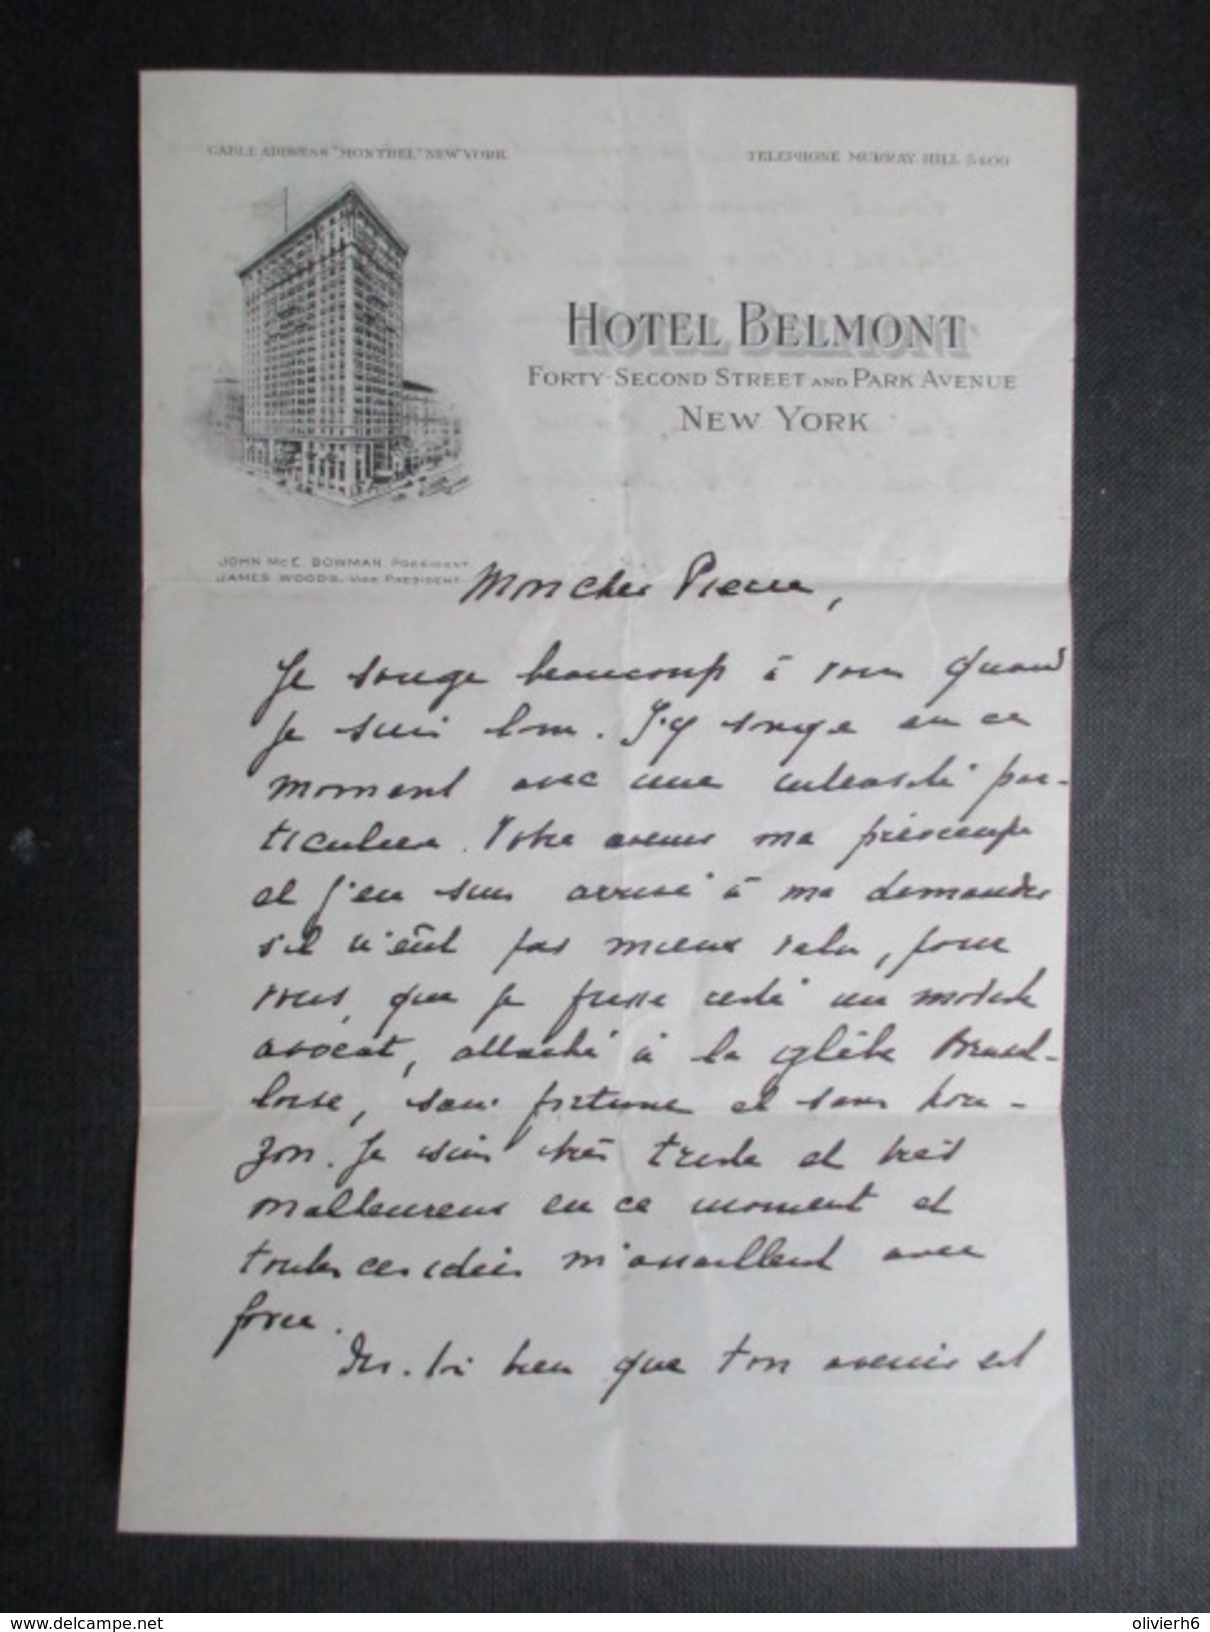 CABLE ADDRESS "MONTBEL" NEW YORK
TELEPHONE MURRAY HILL 5400
HOTEL BELMONT
FORTY-SECOND STREET AND PARK AVENUE
NEW YORK
JOHN MCE. BOWMAN, PRESIDENT
JAMES WOODS, VICE PRESIDENT
Mon cher Pierre,
Je songe beaucoup à vous quand
je suis loin. J'y songe en ce
moment avec une intensité par-
ticulière. Votre avenir me préoccupe
et j'en suis arrivé à me demander
s'il n'eût pas mieux valu, pour
vous, que je fusse resté un modeste
avocat, attaché à la glèbe Bruxel-
loise, sans fortune et sans hori-
zon. Je suis très triste et très
malheureux en ce moment et
toutes ces idées m'assaillent avec
force.
Dis-toi bien que ton avenir est
www.delcampe.net
olivierh6